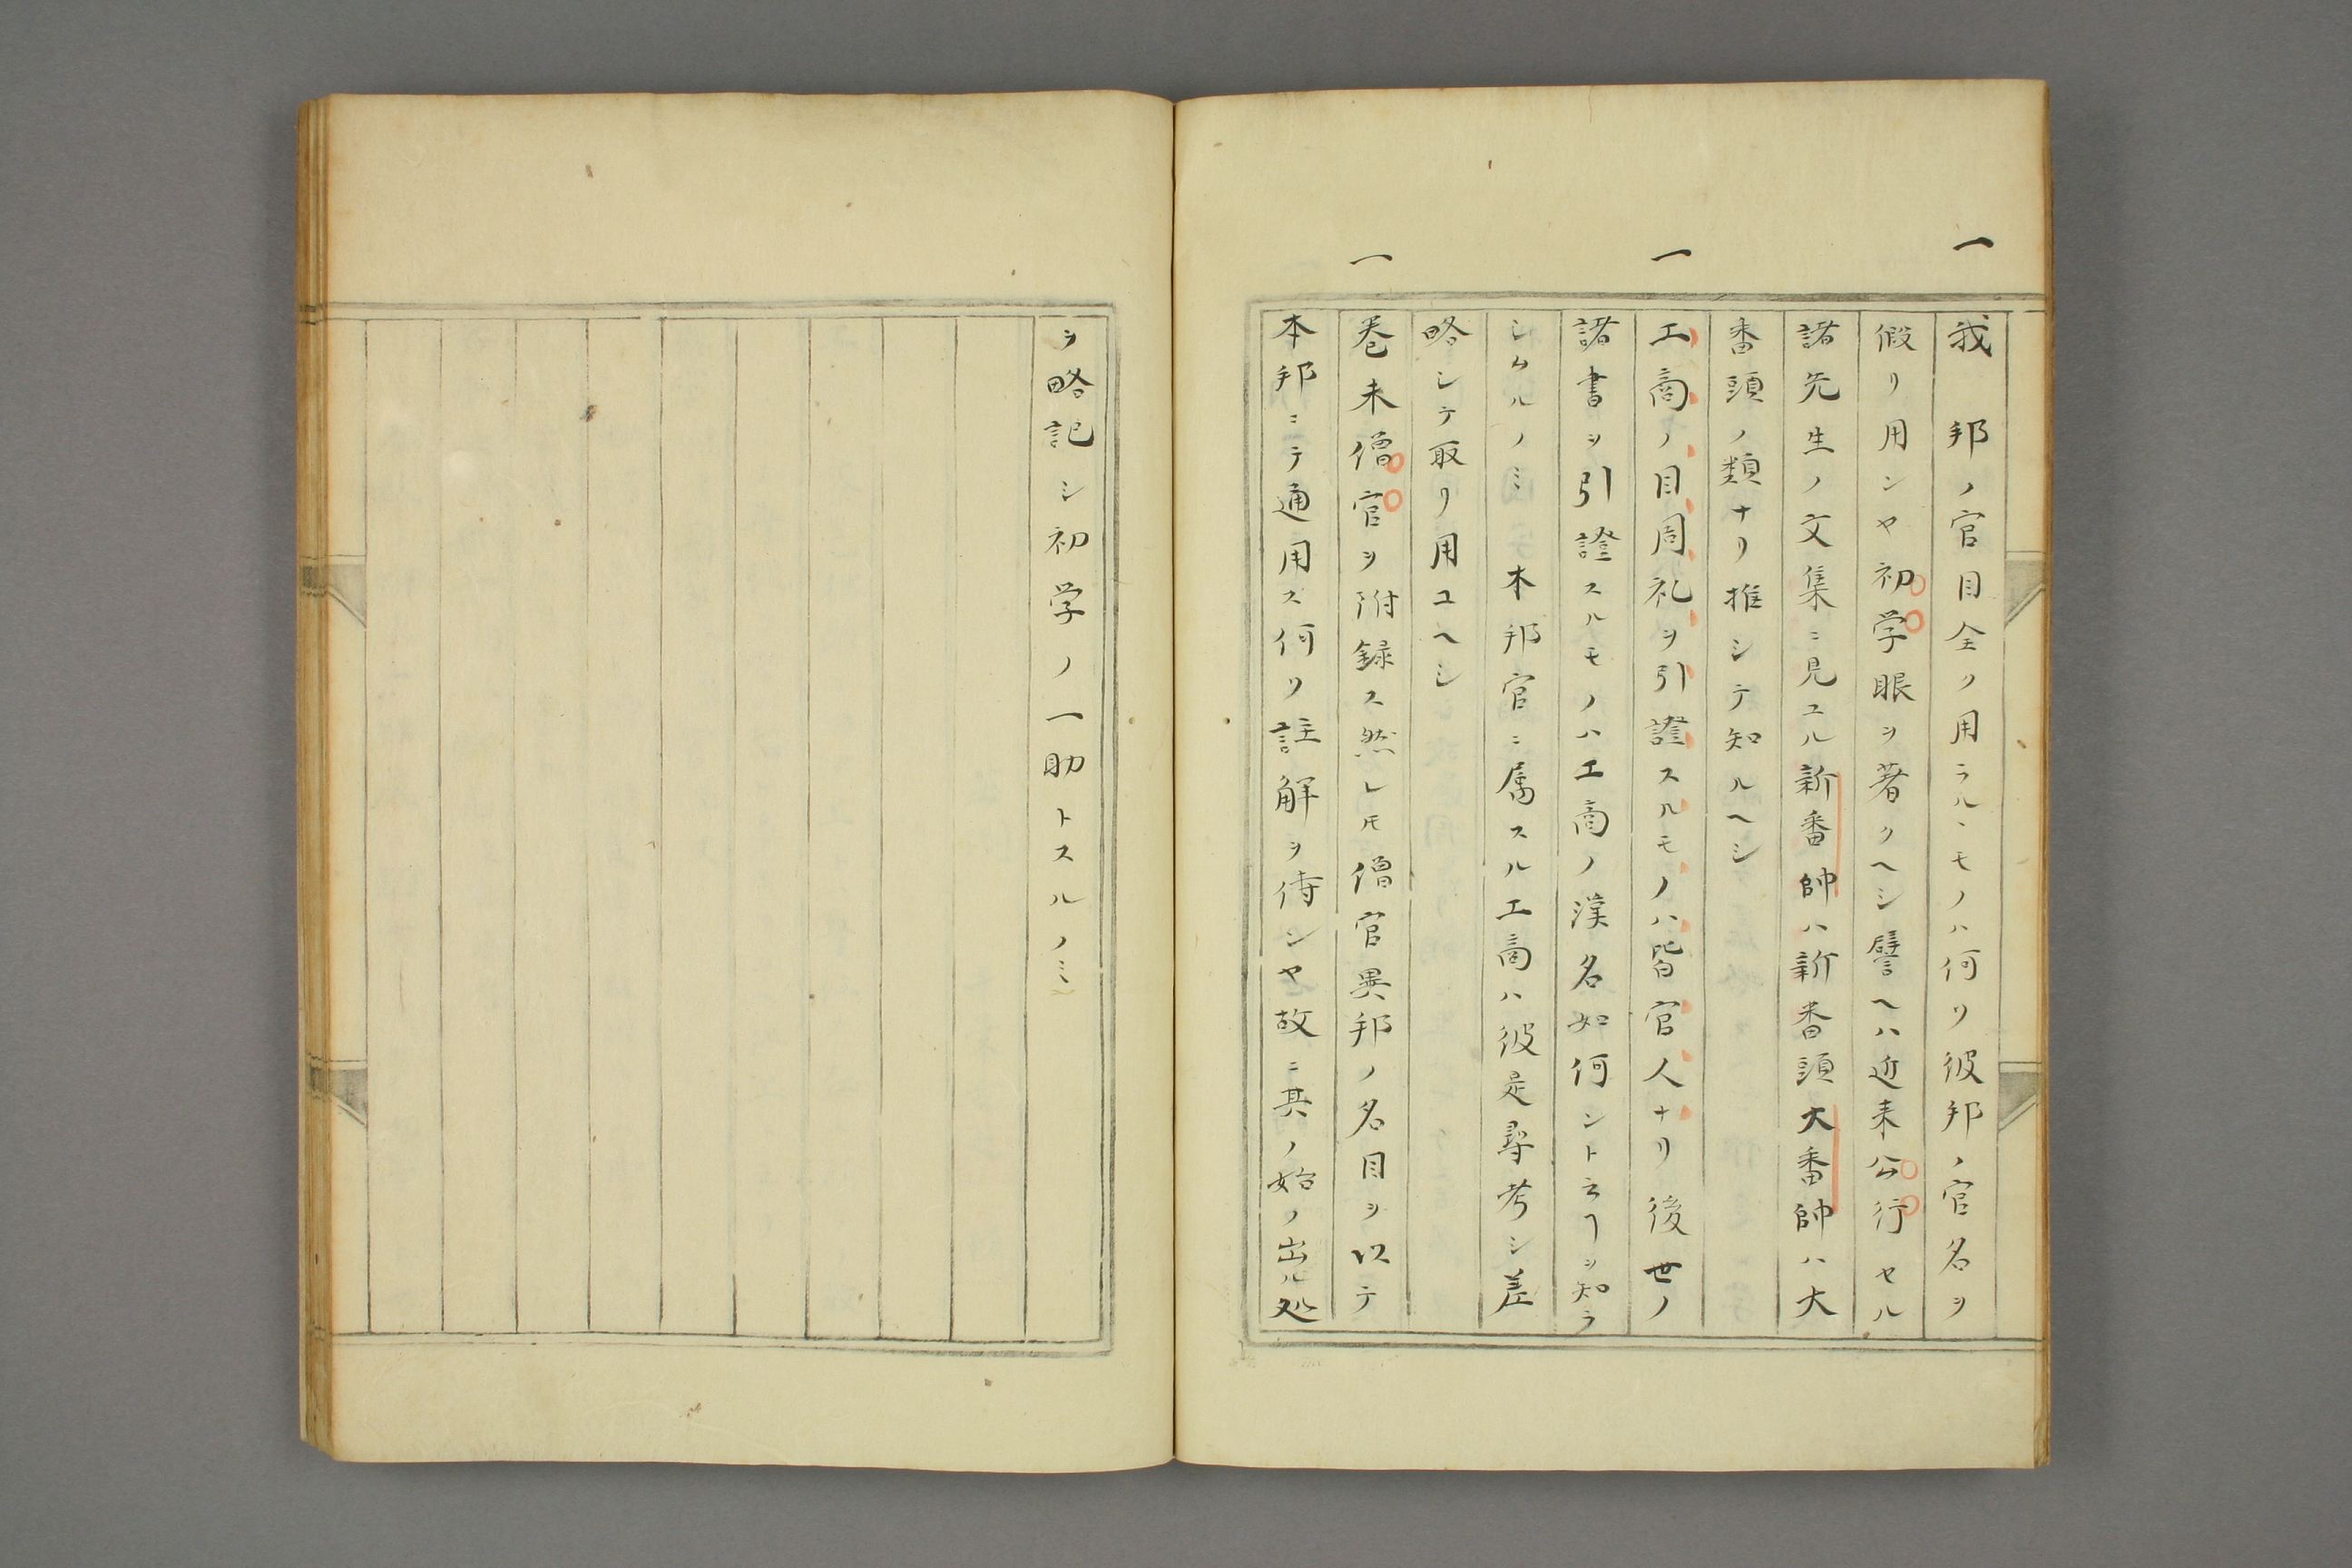 一 我 邦ノ官目全ク用ラルヽモノハ何ソ彼邦ノ官名ヲ
假リ用ンヤ初学眼ヲ著クヘシ譬ヘハ近来公行セル
諸先生ノ文集ニ見ユル新番帥ハ新番頭大番帥ハ大
番頭ノ類ナリ推シテ知ルヘシ
一 工商ノ目周礼ヲ引證スルモノハ皆官人ナリ後世ノ
諸書ヲ引證スルモノハ工商ノ漢名如何ントヿヲ知ラ
シムルノミ本邦官ニ属スル工商ハ彼是尋考シ差
略シテ取リ用ユヘシ
一 巻末僧官ヲ附録ス然レ𪜈僧官異邦ノ名目ヲ以テ
本邦ニテ通用ス何ソ註解ヲ待ンヤ故ニ其ノ始ノ出ル処
ヲ略記シ初学ノ一助トスルノミ